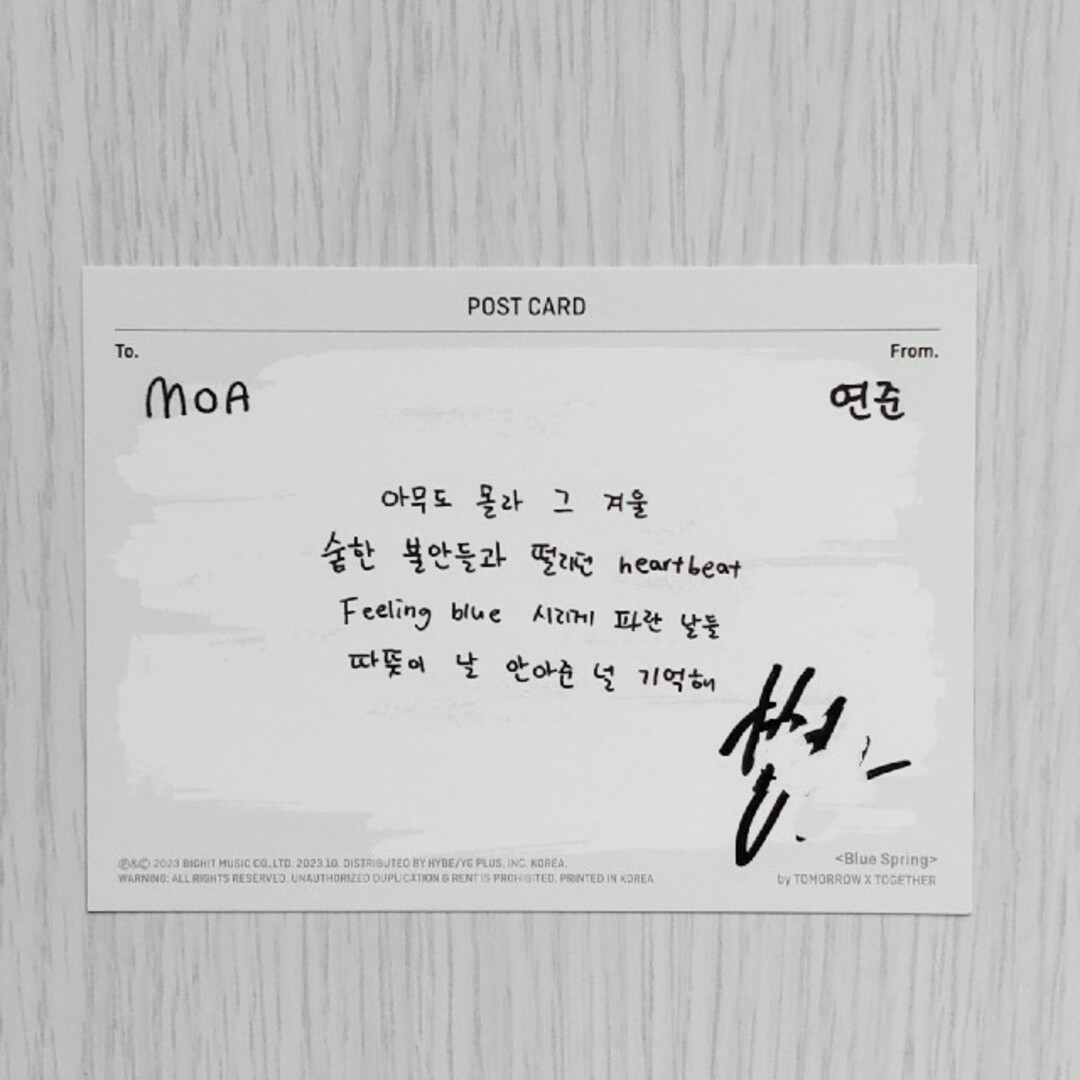 POST CARD
To.
From.
MOA
연준
아무도 몰라 그 겨울
숱한 불안들과 떨리던 heartbeat
Feeling blue 시리게 파란 날들
따뜻이 날 안아준 널 기억해
℗&© 2023 BIGHIT MUSIC CO., LTD. 2023.10. DISTRIBUTED BY HYBE/YG PLUS, INC. KOREA.
WARNING: ALL RIGHTS RESERVED. UNAUTHORIZED DUPLICATION & RENT IS PROHIBITED. PRINTED IN KOREA.
<Blue Spring>
by TOMORROW X TOGETHER